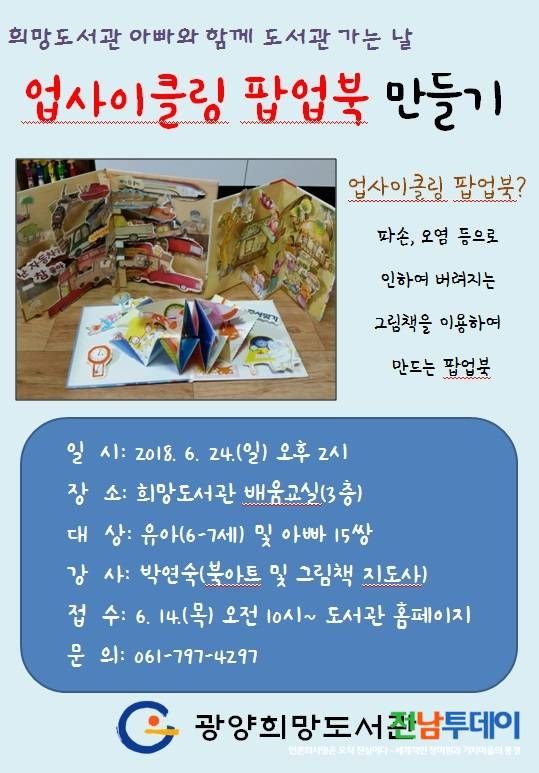 희망도서관 아빠와 함께 도서관 가는 날
업사이클링 팝업북 만들기
업사이클링 팝업북?
파손, 오염 등으로
인하여 버려지는
그림책을 이용하여
만드는 팝업북
일 시: 2018. 6. 24.(일) 오후 2시
장 소: 희망도서관 배움교실(3층)
대 상: 유아(6-7세) 및 아빠 15쌍
강 사: 박연숙(북아트 및 그림책 지도사)
접 수: 6. 14.(목) 오전 10시~ 도서관 홈페이지
문 의: 061-797-4297
광양희망도서관
전남투데이